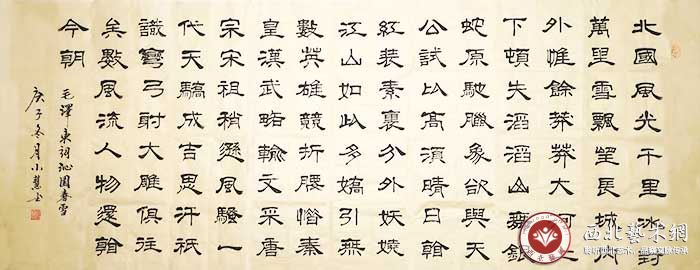 北國風光千里冰封
萬里雪飄望長城
外惟餘莽莽大河上
下頓失滔滔山舞銀
蛇原馳臘象欲與天
公試比高須晴日看
紅裝素裹分外妖嬈
江山如此多嬌引無
數英雄競折腰惜秦
皇漢武略輸文采唐
宗宋祖稍遜風騷一
代天驕成吉思汗祇
識彎弓射大雕俱往
矣數風流人物還看
今朝
毛澤東詞沁園春雪
庚子冬月小慧書
西北藝术網